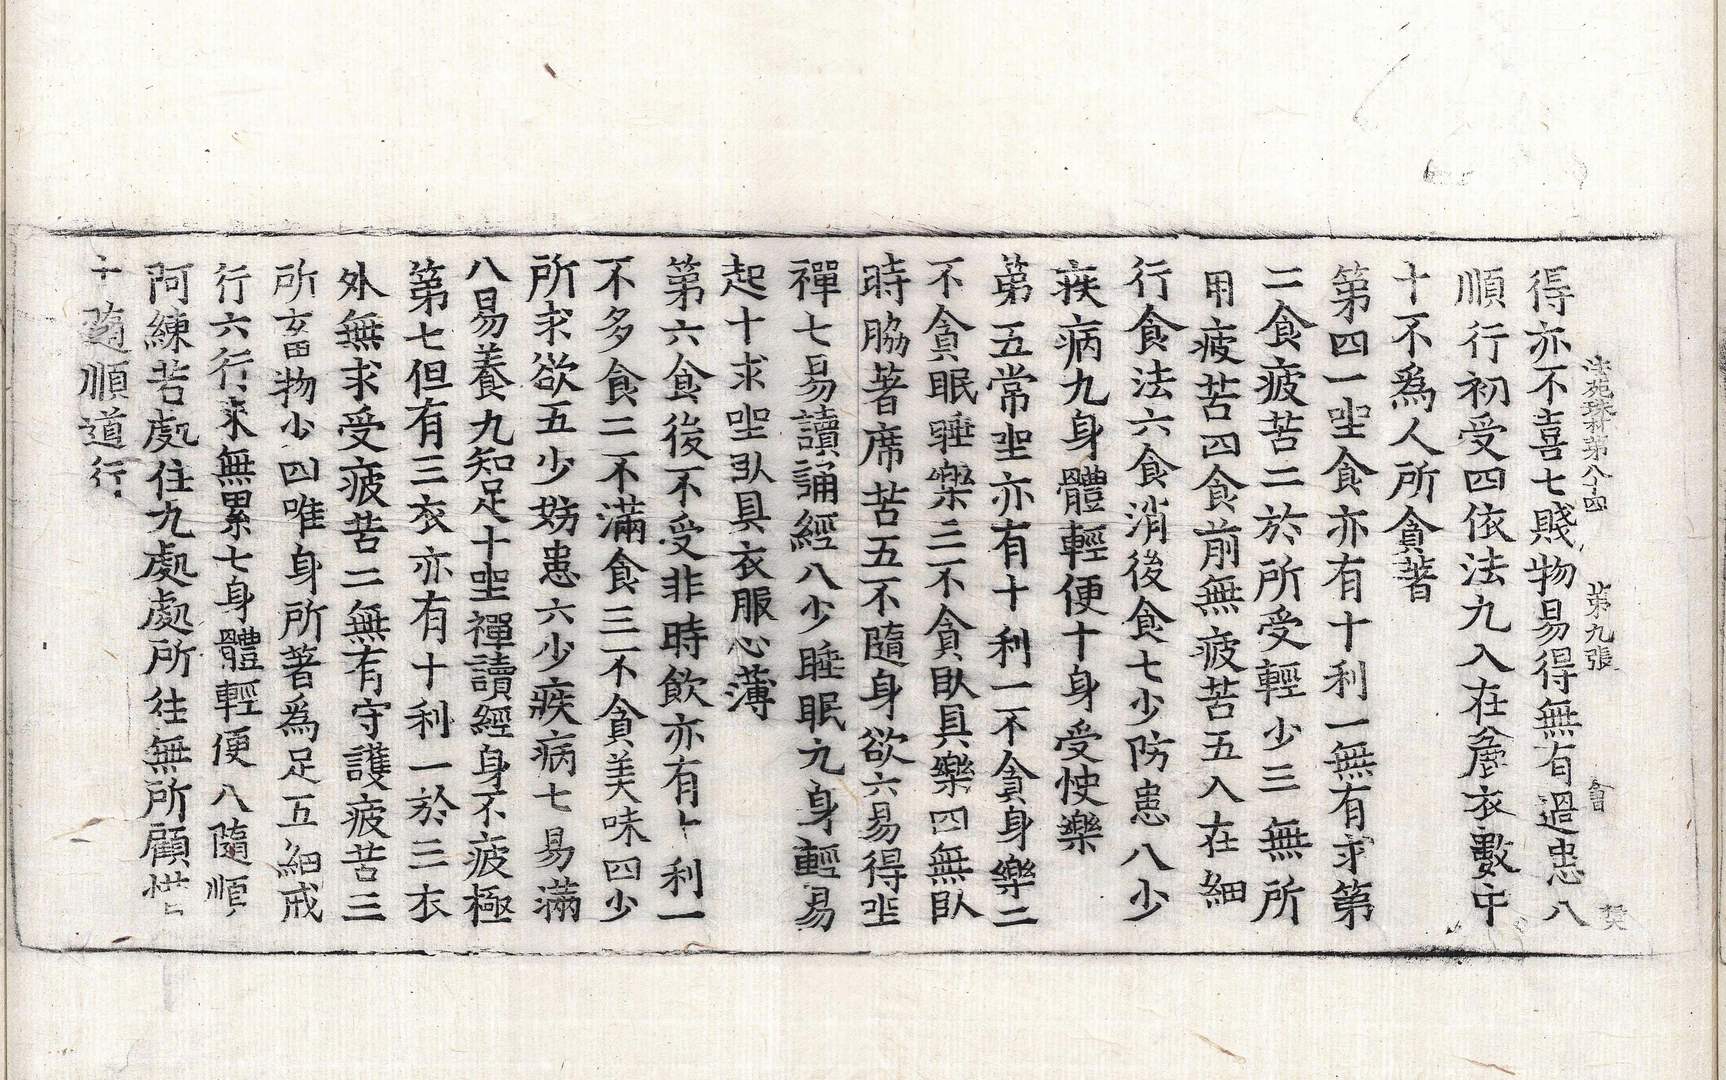 法苑珠林第八四　第九張　樊
得亦不喜七賤物易得無有過患八
順行初受四依法九入在麁衣數中
十不爲人所貪著
第四一坐食亦有十利一無有求第
二食疲苦二於所受輕少三無所
用疲苦四食前無疲苦五入在細
行食法六食消後食七少防患八少
疾病九身體輕便十身受快樂
第五常坐亦有十利一不貪身樂二
不貪眠睡樂三不貪臥具樂四無臥
時脇著席苦五不隨身欲六易得坐
禪七易讀誦經八少睡眠九身輕易
起十求坐臥具衣服心薄
第六食後不受非時飲亦有十利一
不多食二不滿食三不貪美味四少
所求欲五少妨患六少疾病七易滿
八易養九知足十坐禪讀經身不疲極
第七但有三衣亦有十利一於三衣
外無求受疲苦二無有守護疲苦三
所畜物少四唯身所著爲足五細戒
行六行來無累七身體輕便八隨順
阿練苦處住九處處所往無所顧惜
十隨順道行